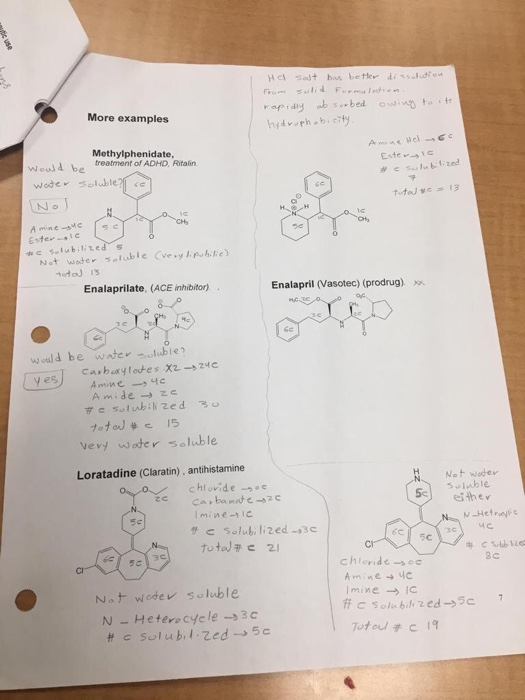 HCl salt has better dissolution
from solid formulation.
rapidly absorbed owing to its
hydrophobicity.
More examples
Methylphenidate,
treatment of ADHD, Ritalin.
Would be
water soluble?
No
Amine → 4C
Ester → 1C
# C solubilized 5
Not water soluble (very lipophilic)
total 13
6C
5C
1C
H
N
O
O
1C
CH3
Amine HCl → 6C
Ester → 1C
# C solubilized
7
total # C = 13
6C
Cl
H
N
H
5C
1C
O
O
1C
CH3
Enalaprilate, (ACE inhibitor)
6C
2C
CH3
N
H
O
N
4C
would be water soluble?
yes
Carboxylates x2 → 24C
Amine → 4C
Amide → 2C
# C solubilized 30
total # C 15
very water soluble
Enalapril (Vasotec) (prodrug)
6C
3C
CH3
N
H
O
N
Loratadine (Claratin), antihistamine
O
O
2C
N
5C
6C
5C
3C
N
Cl
chloride → 0C
Carbamate → 2C
Imine → 1C
# C solubilized → 3C
total # C 21
Not water soluble
N - Heterocycle → 3C
# C solubilized → 5C
H
N
5C
6C
5C
3C
N
Cl
Not water
soluble
either
4C
8C
chloride → 0C
Amine → 4C
Imine → 1C
# C solubilized → 5C
Total # C 19
7